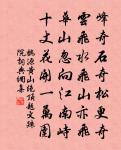 峰奇石奇松更奇
雲飛水飛山亦飛
華山忽向江南峙
十丈花開一萬圍
魏源黄山絕頂題文殊
院詞典網集